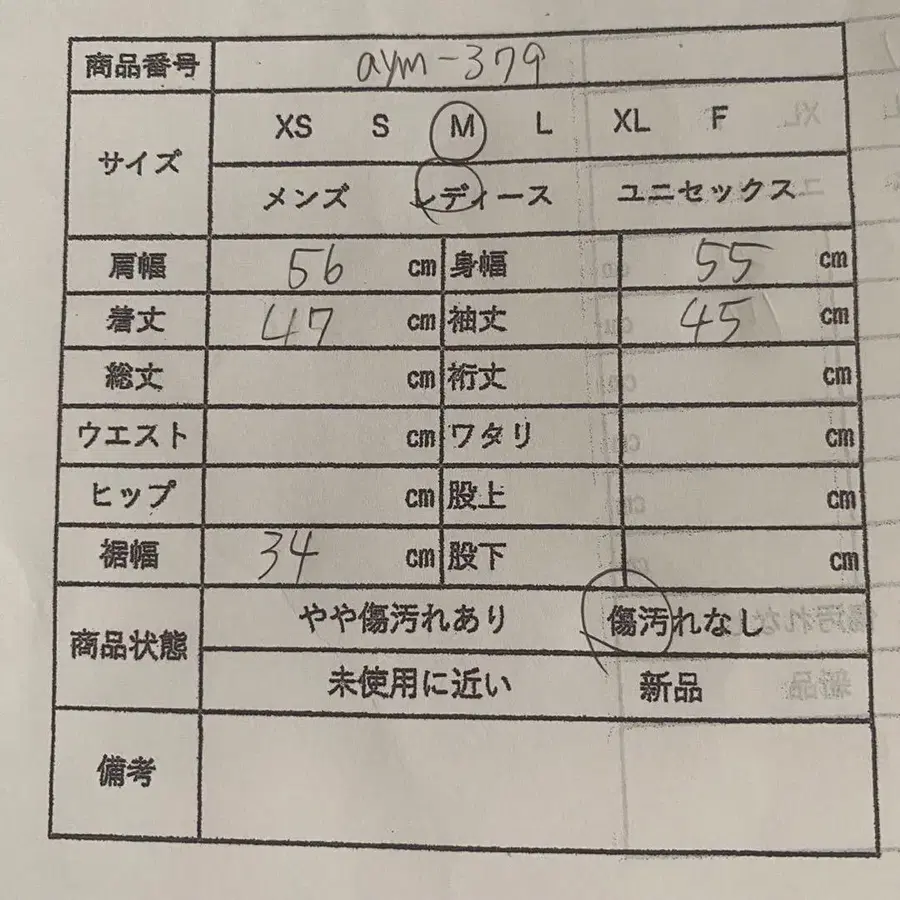 商品番号 aym-379
サイズ XS S M L XL F
メンズ レディース ユニセックス
肩幅 56 cm 身幅 55 cm
着丈 47 cm 袖丈 45 cm
総丈 cm 裄丈 cm
ウエスト cm ワタリ cm
ヒップ cm 股上 cm
裾幅 34 cm 股下 cm
商品状態 やや傷汚れあり 傷汚れなし
未使用に近い 新品
備考